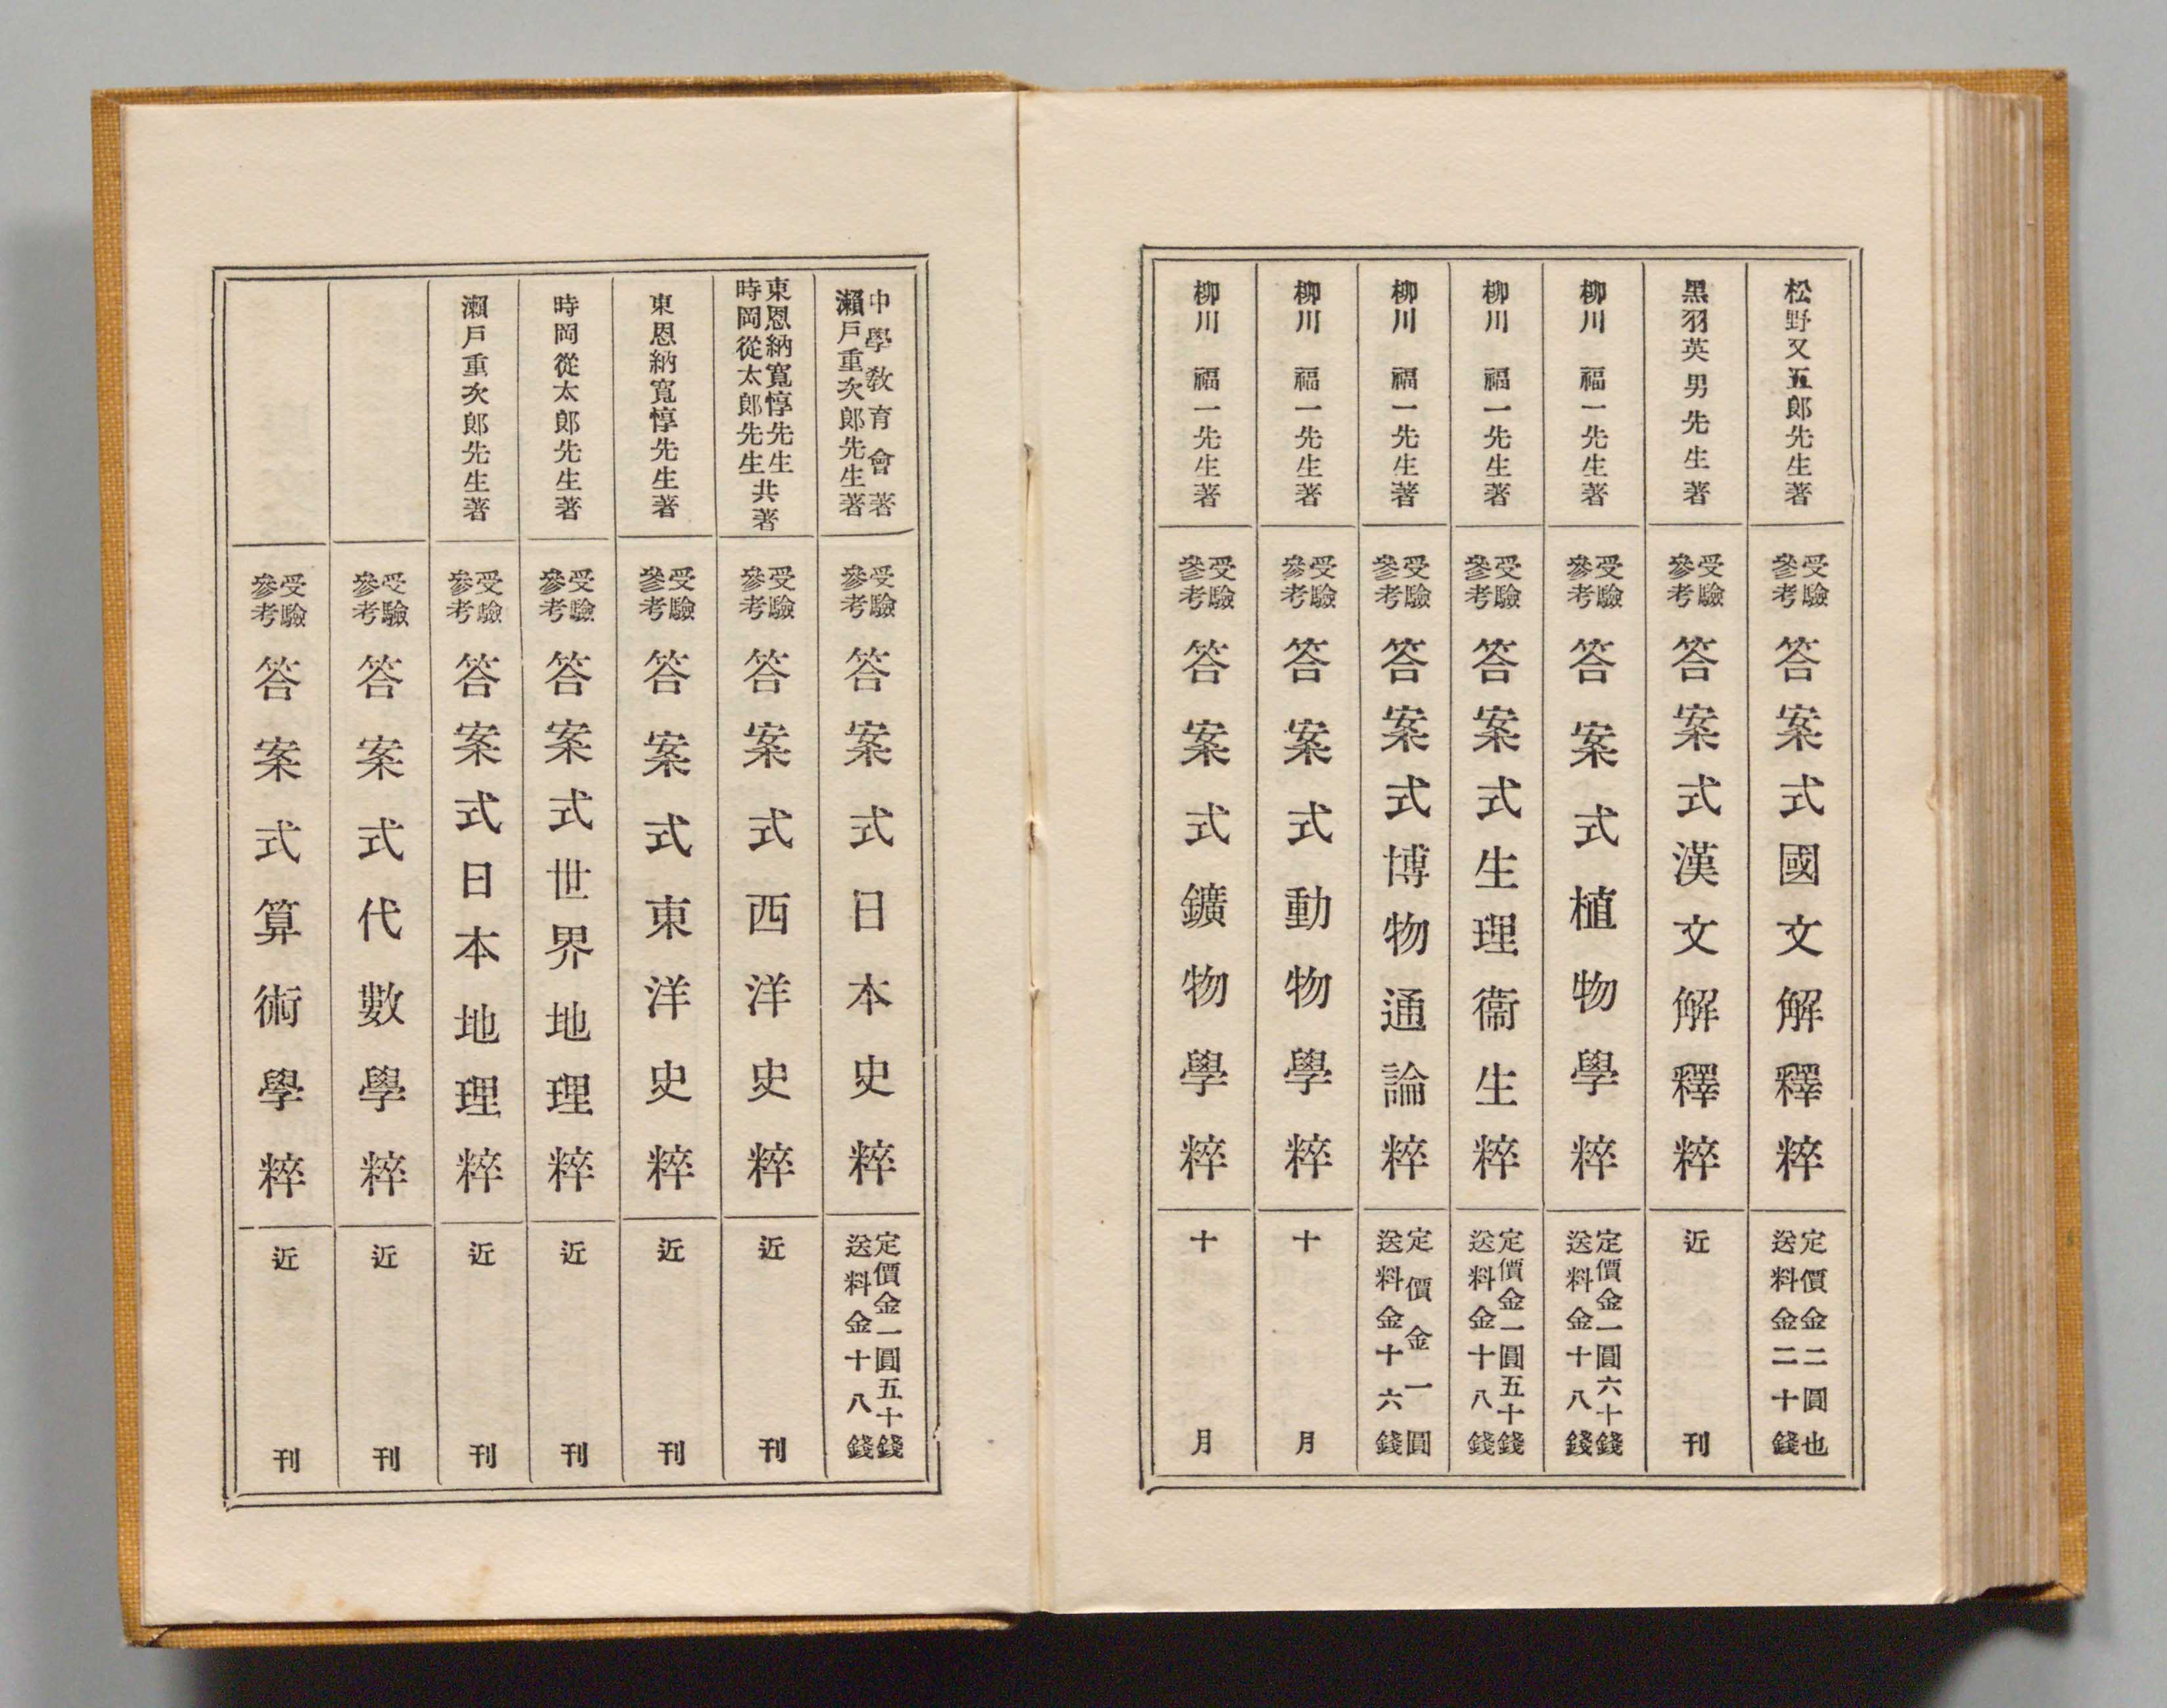 松野又五郎先生著
受驗
參考
答案式國文解釋粹
定價金二圓也
送料金二十錢
黑羽英男先生著
受驗
參考
答案式漢文解釋粹
近刊
柳川福一先生著
受驗
參考
答案式植物學粹
定價金一圓六十錢
送料金十八錢
柳川福一先生著
受驗
參考
答案式生理衞生粹
定價金一圓五十錢
送料金十八錢
柳川福一先生著
受驗
參考
答案式博物通論粹
定價金一圓
送料金十六錢
柳川福一先生著
受驗
參考
答案式動物學粹
十月
柳川福一先生著
受驗
參考
答案式鑛物學粹
十月
中學敎育會著
瀨戶重次郎先生著
受驗
參考
答案式日本史粹
定價金一圓五十錢
送料金十八錢
東恩納寬惇先生
時岡從太郎先生
共著
受驗
參考
答案式西洋史粹
近刊
東恩納寬惇先生著
受驗
參考
答案式東洋史粹
近刊
時岡從太郎先生著
受驗
參考
答案式世界地理粹
近刊
瀨戶重次郎先生著
受驗
參考
答案式日本地理粹
近刊
受驗
參考
答案式代數學粹
近刊
受驗
參考
答案式算術學粹
近刊